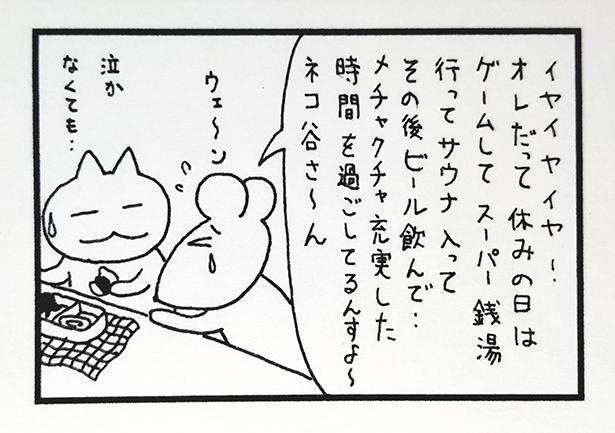 イヤイヤイヤー.
オレだって 休みの日は
ゲームして スーパー銭湯
行って サウナ 入って
その後 ビール飲んで‥
メチャクチャ 充実した
時間を過ごしてるんすよ〜
ネコ谷さ〜ん
ウェ〜ン
泣か
なくても‥